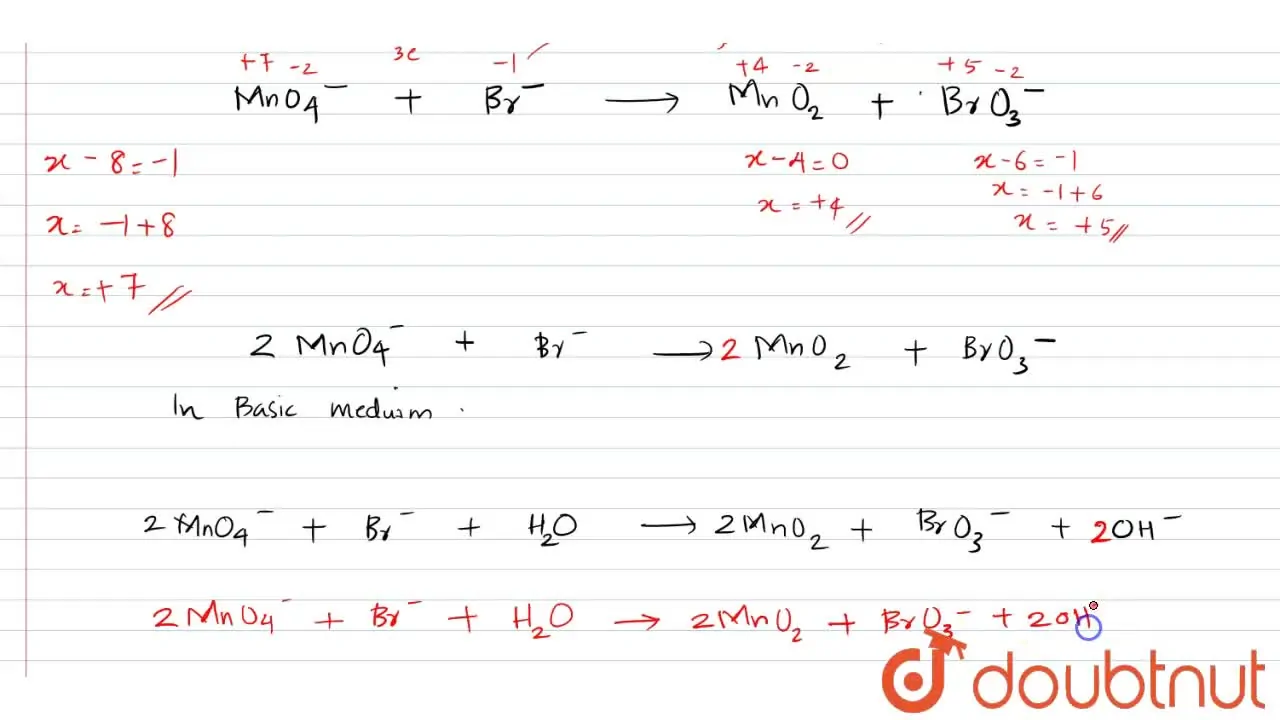 +7 -2 3e -1 +4 -2 +5 -2
MnO4⁻ + Br⁻ → MnO2 + BrO3⁻
x - 8 = -1 x - 4 = 0 x - 6 = -1
x = -1 + 8 x = +4 x = -1 + 6
x = +7 x = +5
2 MnO4⁻ + Br⁻ → 2 MnO2 + BrO3⁻
In Basic medium
2 MnO4⁻ + Br⁻ + H2O → 2 MnO2 + BrO3⁻ + 2OH⁻
2 MnO4⁻ + Br⁻ + H2O → 2 MnO2 + BrO3⁻ + 2OH
doubtnut